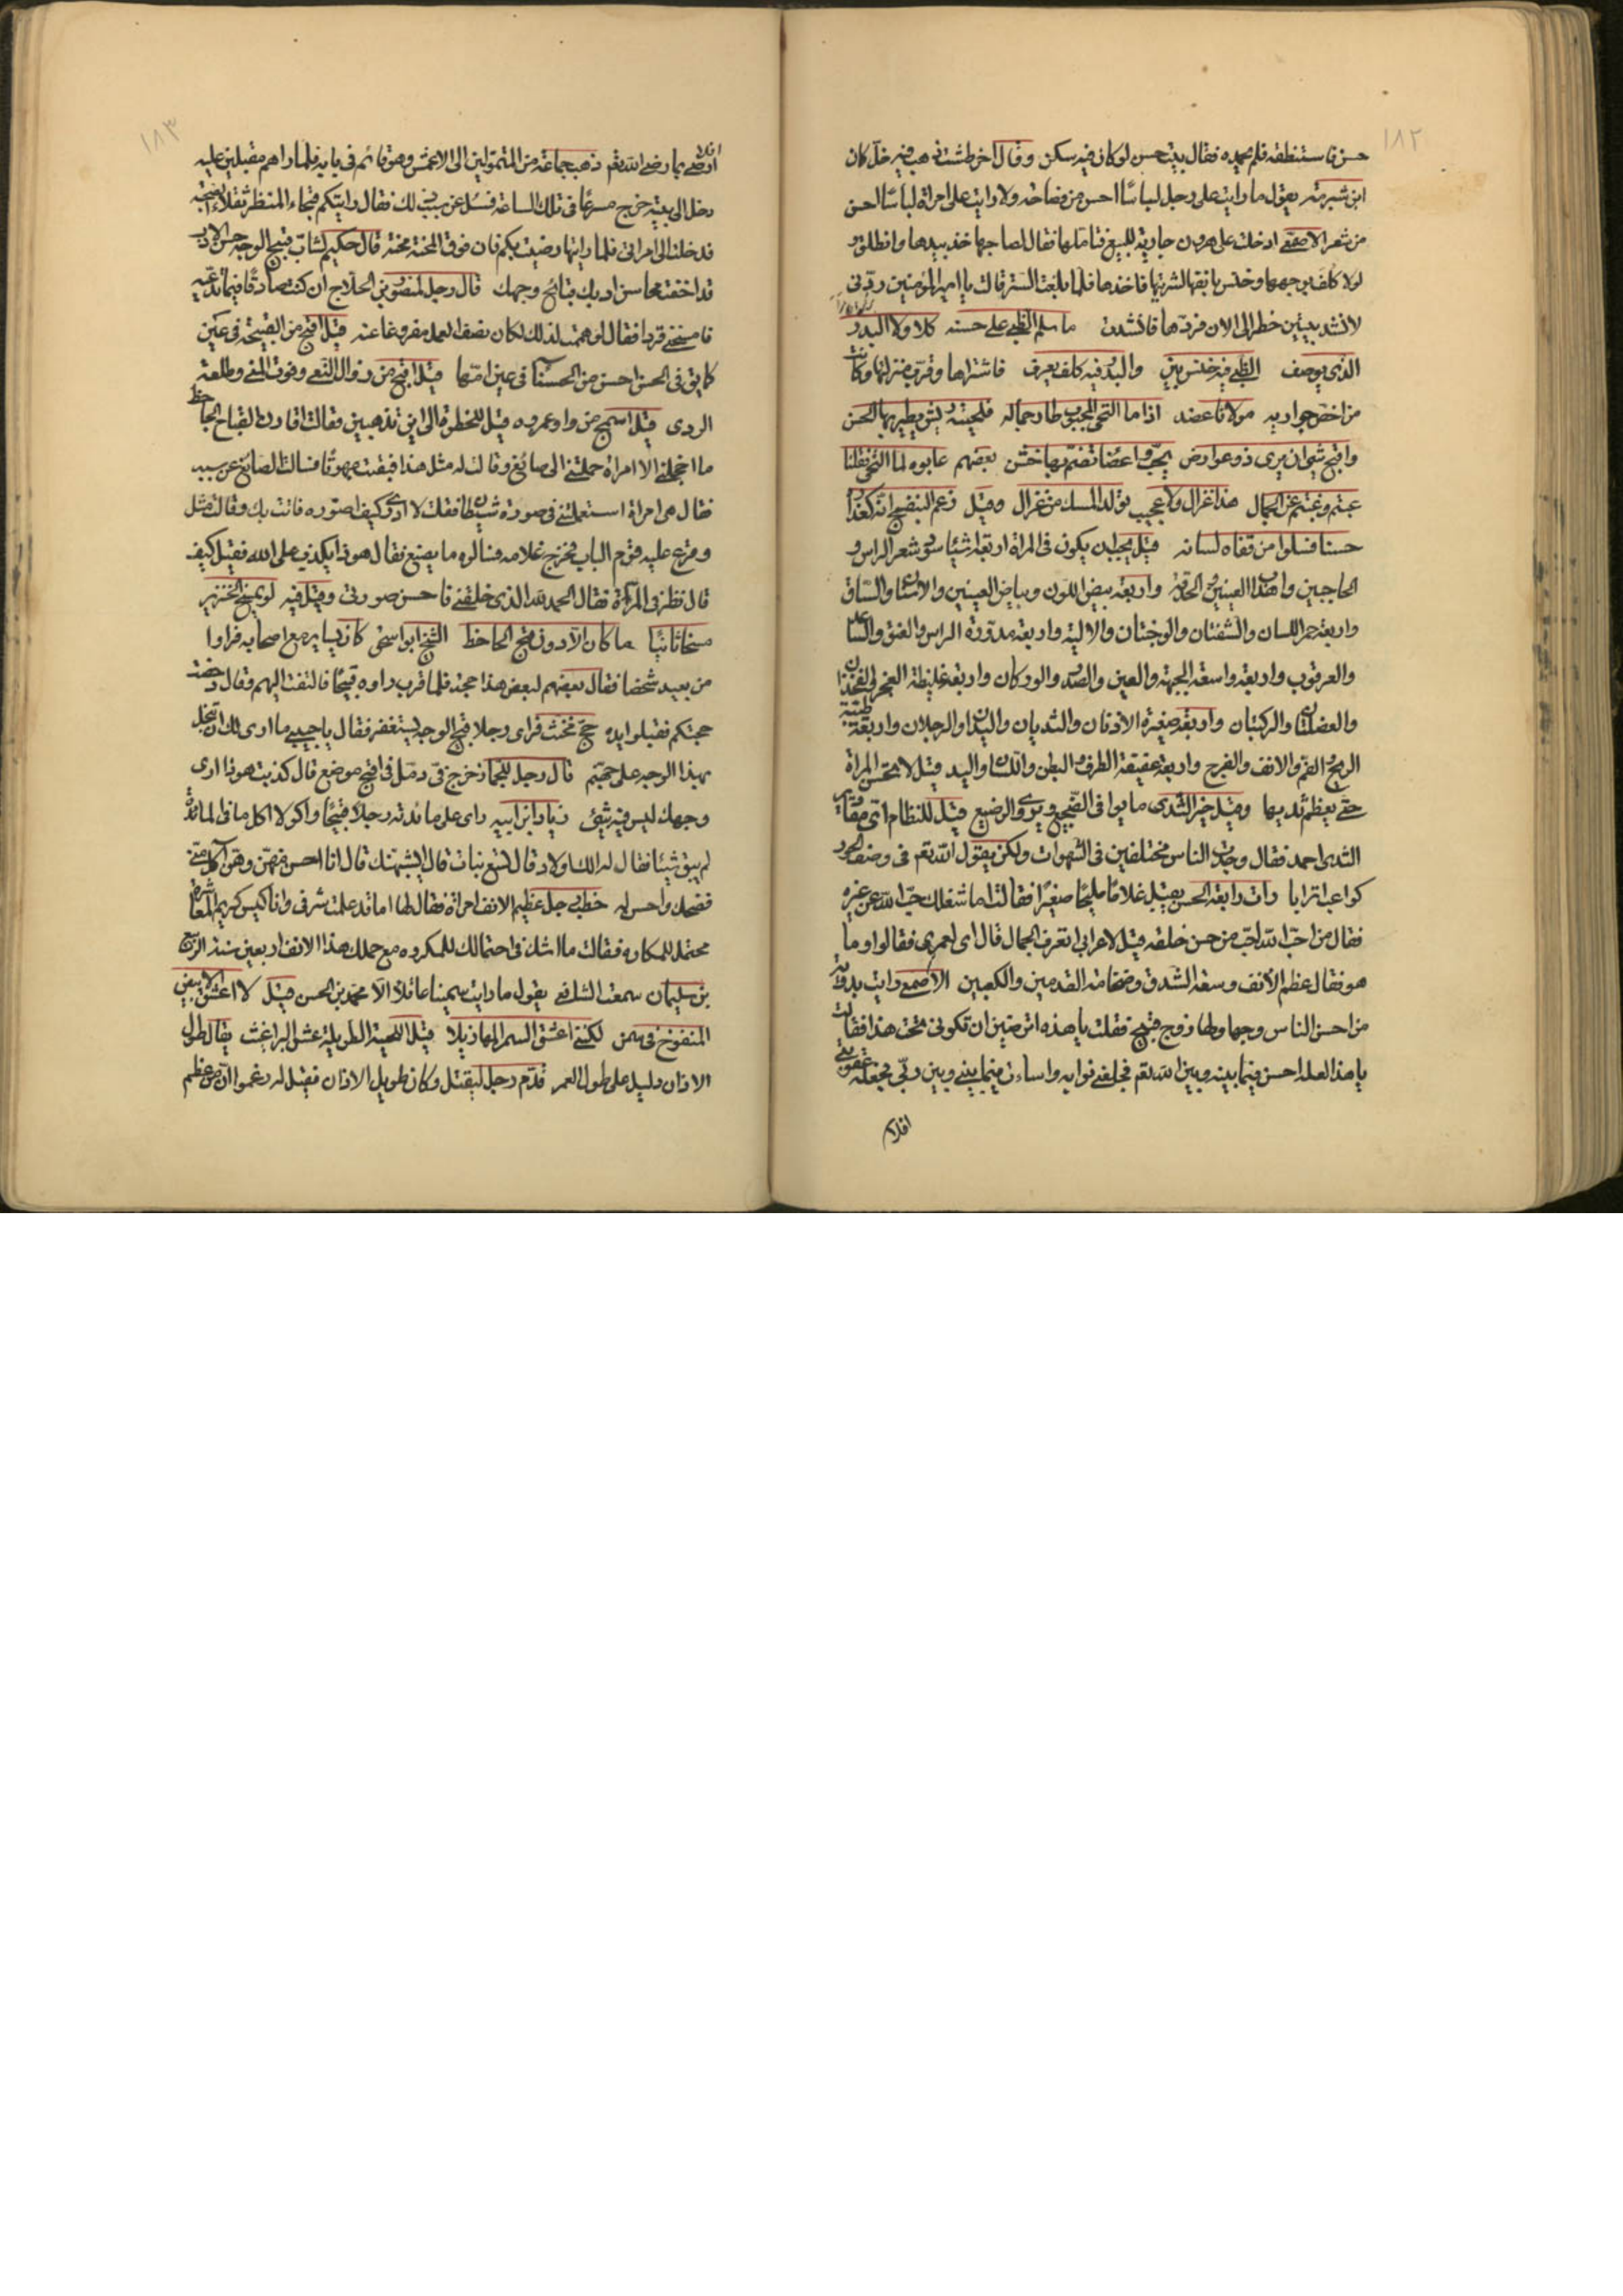 ١٨٢
حسن فاستنطقه فلم يحمده فقال بيت حسن لو كان فيه سكن وقال اخر طشت ذهب فيه خل كان
ابن شبرمة يقول ما رايت على رجل لباسًا احسن من فصاحة ولا رايت على امراة لباسًا احسن
من شعر الاصمعي ادخلت على هرون جارية للبيع فتاملها فقال لصاحبها خذ بيدها وانطلق و
لولا كلف بوجهها وخنس بانفها لاشتريتها فاخذها فلما بلغت الستر قالت يا امير المؤمنين ردني
لانشد بيتين خطرا لي الان فردها فانشدت ما سلم الظبي على حسنه كلا ولا البدر
الذي يوصف الظبي فيه خنس بين والبدر فيه كلف يعرف فاشتراها وقرب منزلتها وكانت
من اخص جواريه مولانا عضد اذا ما التحى المحبوب طار جماله فلحيته ريش يطير بها الحسن
واقبح شئ ان يرى ذو عوارض يحب واعضا تضم بها خشن بعضهم عابوه لما التحى فقلنا
عبتم وغبتم عن الجمال هذا غزال ولا عجيب تولد المسك من غزال وقيل زعم البنفسج انه كعذاره
حسنا فسلوا من قفاه لسانه قيل يجب ان يكون في المراة اربعة اشيا سود شعر الراس و
الحاجبين واهداب العينين والحدقة واربعة بيض اللون وبياض العينين والاسنان والساق
واربعة حمر اللسان والشفتان والوجنتان والالية واربعة مدورة الراس والعنق والساعد
والعرقوب واربعة واسعة الجبهة والعين والصدر والوركان واربعة غليظة العجز والفخذان
والعضلتان والركبتان واربعة صغيرة الاذنان والثديان واليدان والرجلان واربعة طيبة
الريح الفم والانف والفرج واربعة عفيفة الطرف والبطن واللسان واليد قيل لا تحسن المراة
حتى يعظم ثدييها وقيل خير الثدي ما يدفي الضجيع ويروي الرضيع قيل للنظام اي مقادير
الثدي احمد فقال وجدت الناس مختلفين في الشهوات ولكن يقول الله تعم في وصف الحور
كواعب اترابا رات رابعة الحسن يقبل غلامًا مليحًا صغيرًا فقالت اما شغلك حب الله عن غيره
فقال من احب الله احب من حسن خلقه قيل لاعرابي اتعرف الجمال قال اي لعمري فقالوا وما
هو فقال عظم الانف وسعة الشدق وضخامة القدمين والكعبين الاصمعي رايت بدوية
من احسن الناس وجها ولها زوج قبيح فقلت يا هذه اترضين ان تكوني تحت هذا فقالت
يا هذا لعله احسن فيما بينه وبين الله تعم فجعلني ثوابه واسات فيما بيني وبين ربي فجعله عقوبتي
افلا
١٨٣
افلا ارضى بما رضي الله تعم ذهب جماعة من المتمولين الى الاعمش وهو قائم في بابه فلما راهم مقبلين عليه
دخل الى بيته ثم خرج مسرعًا في تلك الساعة فسئل عن سبب ذلك فقال رايتكم فجاء المنظر ثقلاء
فدخلت الى امراتي فلما رايتها رضيت بكم فان فوق المحنة محنة قال حكيم لشاب قبيح الوجه حسن الادب
قد اخفت محاسن ادبك قبائح وجهك قال رجل لمنصور بن الحلاج ان كنت صادقًا فيما تدعيه
فامسخني قردا فقال لو هممت لذلك لكان نصف العمل مفروغا عنه قيل اقبح من القبيحة في عين
كما بقى في الحسن احسن من الحسنا في عين امها قيل اقبح من زوال النعمى وفوت المنى وطلعة
الردى قيل اسمج من واو عمرو قيل للخطوة الى اين تذهبين فقالت اقاود القباح الجاحظ
ما اخجلني الا امراة حملتني الى صائغ وقالت له مثل هذا فبقيت مبهوتًا فسالت الصائغ عن سببه
فقال هي امراة استعملتني في صورة شيطان فقلت لا ادري كيف اصوره فاتت بك وقالت مثل
وقرع عليه قوم الباب فخرج غلامه فسالوه ما يصنع فقال هو ذا يكذب على الله فقيل كيف
قال نظر في المرآة فقال الحمد لله الذي خلقني فاحسن صورتي وقيل فيه لو يمسخ الخنزير
مسخا ثانيًا ما كان الا دون قبح الجاحظ الشيخ ابو اسحق كان يساير مع اصحابه فراوا
من بعيد شخصا فقال بعضهم لبعض هذا حجة فلما قرب راوه قبيحًا فالتفت اليهم وقال دحضت
حجتكم فقبلوا يده حج مخنث فراى رجلا قبيح الوجه يستغفر فقال يا حبيبي ما ارى لك ان تبخل
بهذا الوجه على جهنم قال رجل للجماز خرج في دمل في اقبح موضع قال كذبت هو ذا ارى
وجهك ليس فيه شئ زياد ابن ابيه راى على مائدته رجلا قبيحًا واكولا اكل ما في المائدة
لم يبق شيئا فقال له الك اولاد قال تسع بنات قال ايشبهنك قال انا احسن منهن وهن اكل مني
فضحك واحسن له خطب رجل عظيم الانف امراة فقال لها اما قد علمت شرفي وانا كيس كريم المعاشرة
محتمل للمكاره فقالت ما اشك في احتمالك للمكروه مع حملك هذا الانف اربعين سنة الربيع
بن سليمان سمعت الشافعي يقول ما رايت سمينا عاقلا الا محمد بن الحسن قيل لا اعشق الابيض
المنفوخ في سمن لكنني اعشق السمر المهازيلا قيل اللحية الطويلة عش البراغيث يقال طول
الاذان دليل على طول العمر قدم رجل ليقتل وكان طويل الاذان فقيل له زعموا ان من عظم